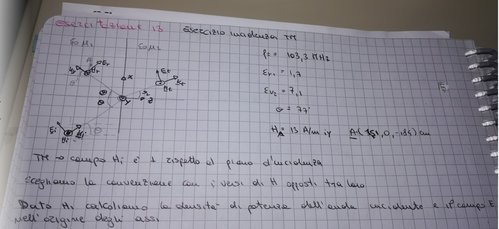 esercitazione 13 esercizio incidenza TM
ε0 μ1 ε0 μ2
f = 103,3 MHz
εr1 = 1,7
εr2 = 7,1
θ = 77°
H = 13 A/m iy
TM → campo Hi è ⊥ rispetto al piano d'incidenza
scegliamo la convenzione con i versi di H opposti tra loro
Dato Hi calcoliamo la densità di potenza dell'onda incidente e il campo E
nell'origine degli assi